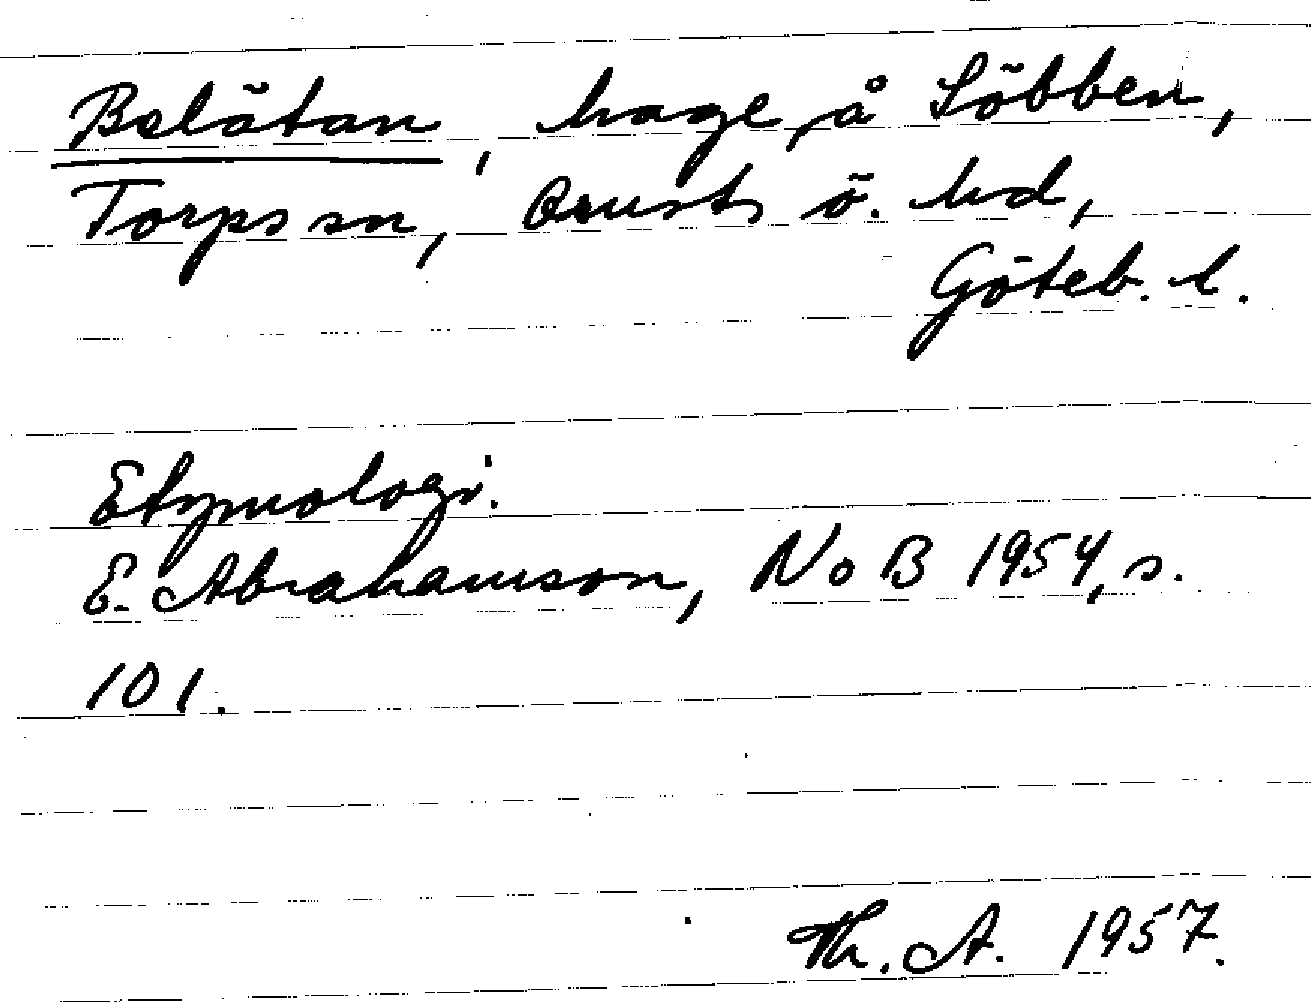 Belätan, hage på Söbben,
Torps sn, Orusts ö. hd,
Göteb. l.
Etymologi.
E. Abrahamson, NoB 1954, s.
101.
Th. A. 1957.